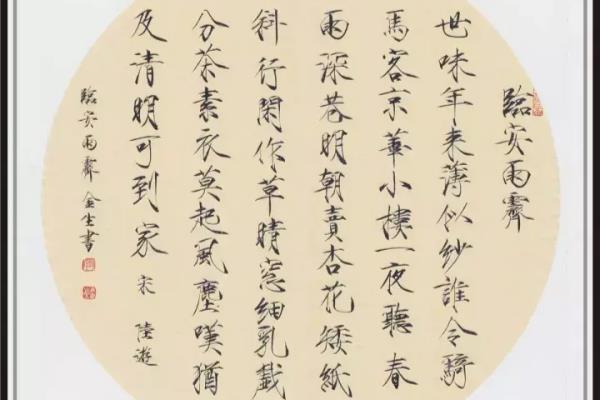 臨安雨霽
世味年来薄似紗誰令騎
馬客京華小樓一夜聽春
雨深巷明朝賣杏花矮紙
斜行閑作草晴窓細乳戲
分茶素衣莫起風塵嘆猶
及清明可到家 宋 陸遊
臨安雨霽 金生書